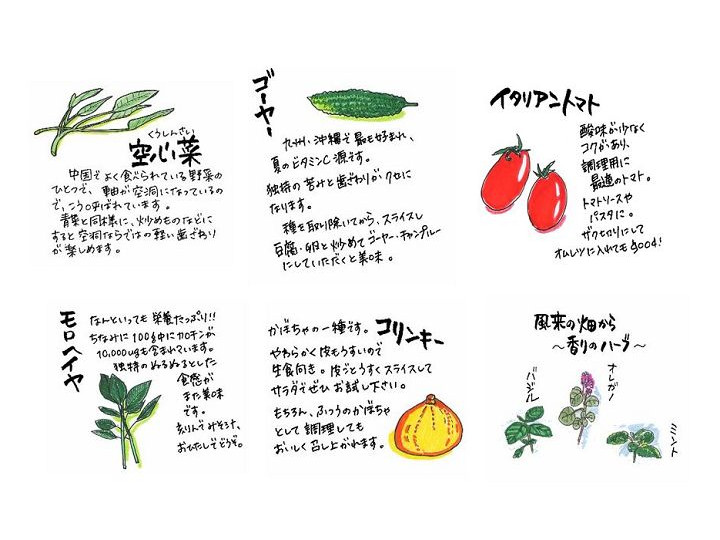 くうしんさい
空心菜
中国でよく食べられている野菜の
ひとつで、軸が空洞になっているの
で、こう呼ばれています。
青菜と同様に、炒めものなどに
すると空洞ならではの軽い歯ざわり
が楽しめます。
ゴーヤー
九州・沖縄で最も好まれ、
夏のビタミンC源です。
独特の苦みと歯ざわりがクセに
なります。
種を取り除いてから、スライスし
豆腐・卵と炒めてゴーヤー・チャンプルー
にしていただくと美味。
イタリアントマト
酸味が少なく
コクがあり、
調理用に
最適のトマト。
トマトソースや
パスタに。
ザク切りにして
オムレツに入れてもgood!
モロヘイヤ
なんといっても栄養たっぷり!!
ちなみに100g中にカロチンが
10,000ugも含まれています。
独特のぬるぬるとした
食感が
また美味
です。
刻んでみそ汁、
おひたしでどうぞ。
コリンキー
かぼちゃの一種です。
やわらかく皮もうすいので
生食向き。皮ごとうすくスライスして
サラダでぜひお試し下さい。
もちろん、ふつうのかぼちゃ
として調理しても
おいしく召し上がれます。
風来の畑から
～香りのハーブ～
バジル
オレガノ
ミント